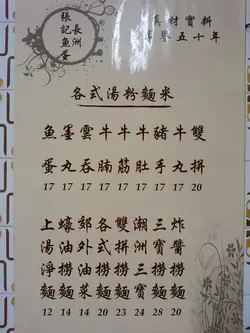 長洲
張記魚蛋
真材實料
譽五十年
各式湯粉麵米
魚蛋 17
墨丸 17
雲吞 17
牛腩 17
牛筋 17
牛肚 17
豬手 17
牛丸 17
雙拼 20
上湯淨麵 12
蠔油撈麵 14
郊外油菜 14
各式撈麵 20
雙拼撈麵 23
潮洲三寶 24
三寶撈麵 28
炸醬撈麵 20